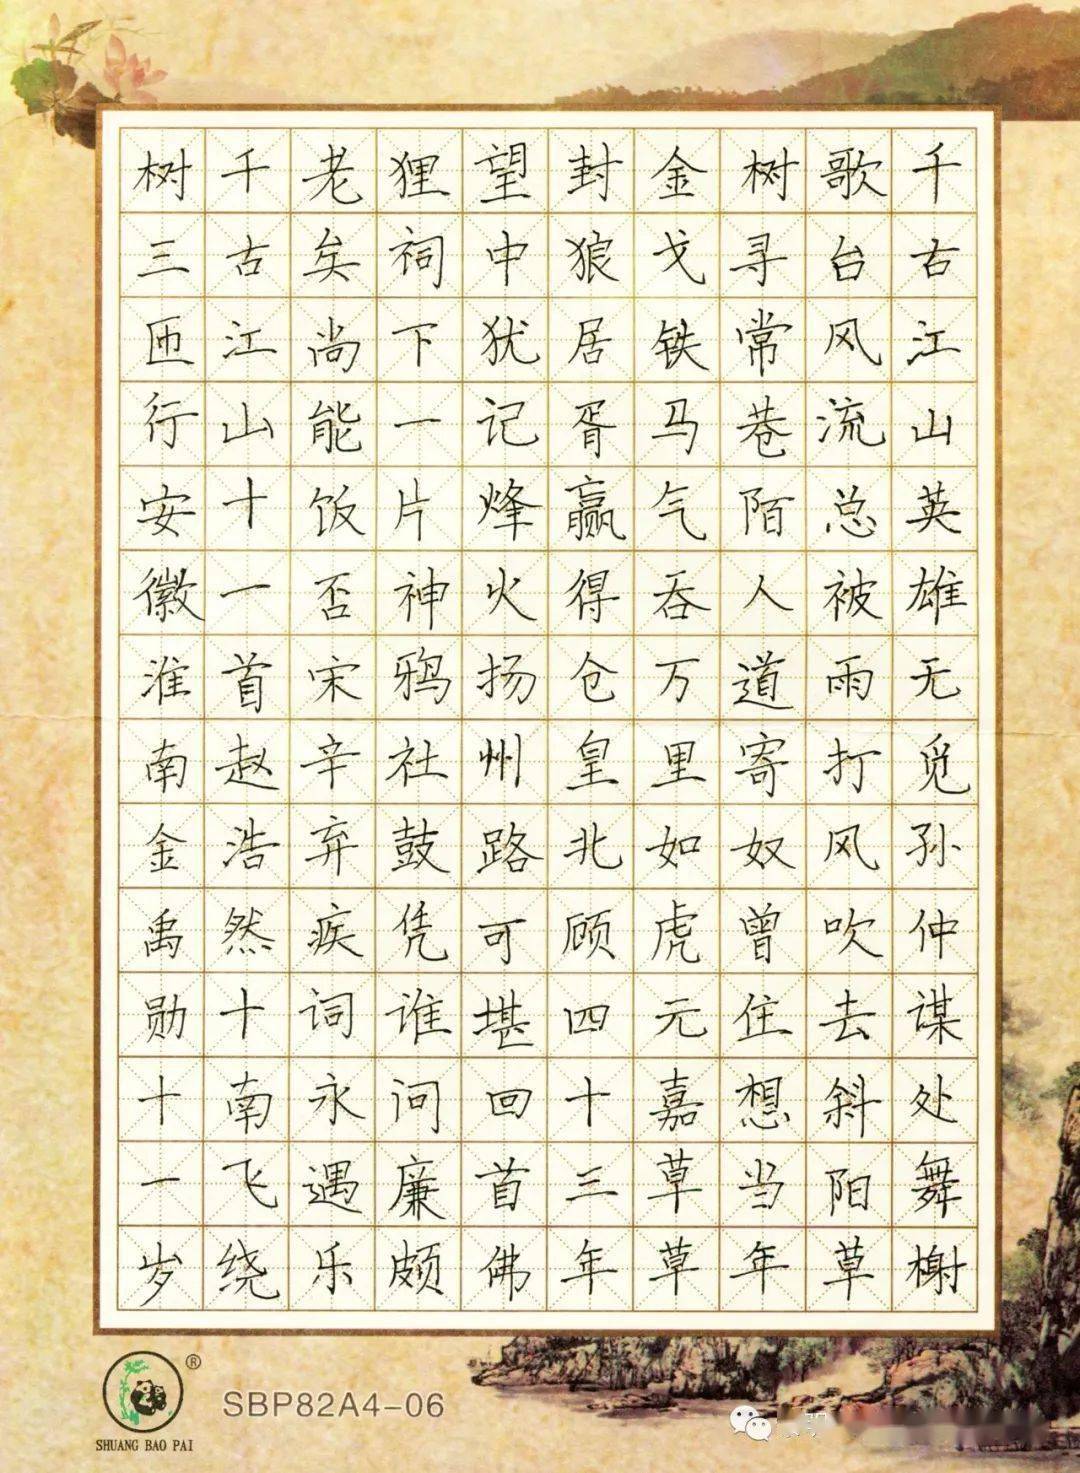 千古江山英雄无觅孙仲谋处舞榭
歌台风流总被雨打风吹去斜阳草
树寻常巷陌人道寄奴曾住想当年
金戈铁马气吞万里如虎元嘉草草
封狼居胥赢得仓皇北顾四十三年
望中犹记烽火扬州路可堪回首佛
狸祠下一片神鸦社鼓凭谁问廉颇
老矣尚能饭否宋辛弃疾词永遇乐
千古江山十一首赵浩然十南飞绕
树三匝行安徽淮南金禹勋十一岁
®
SHUANG BAO PAI
SBP82A4-06